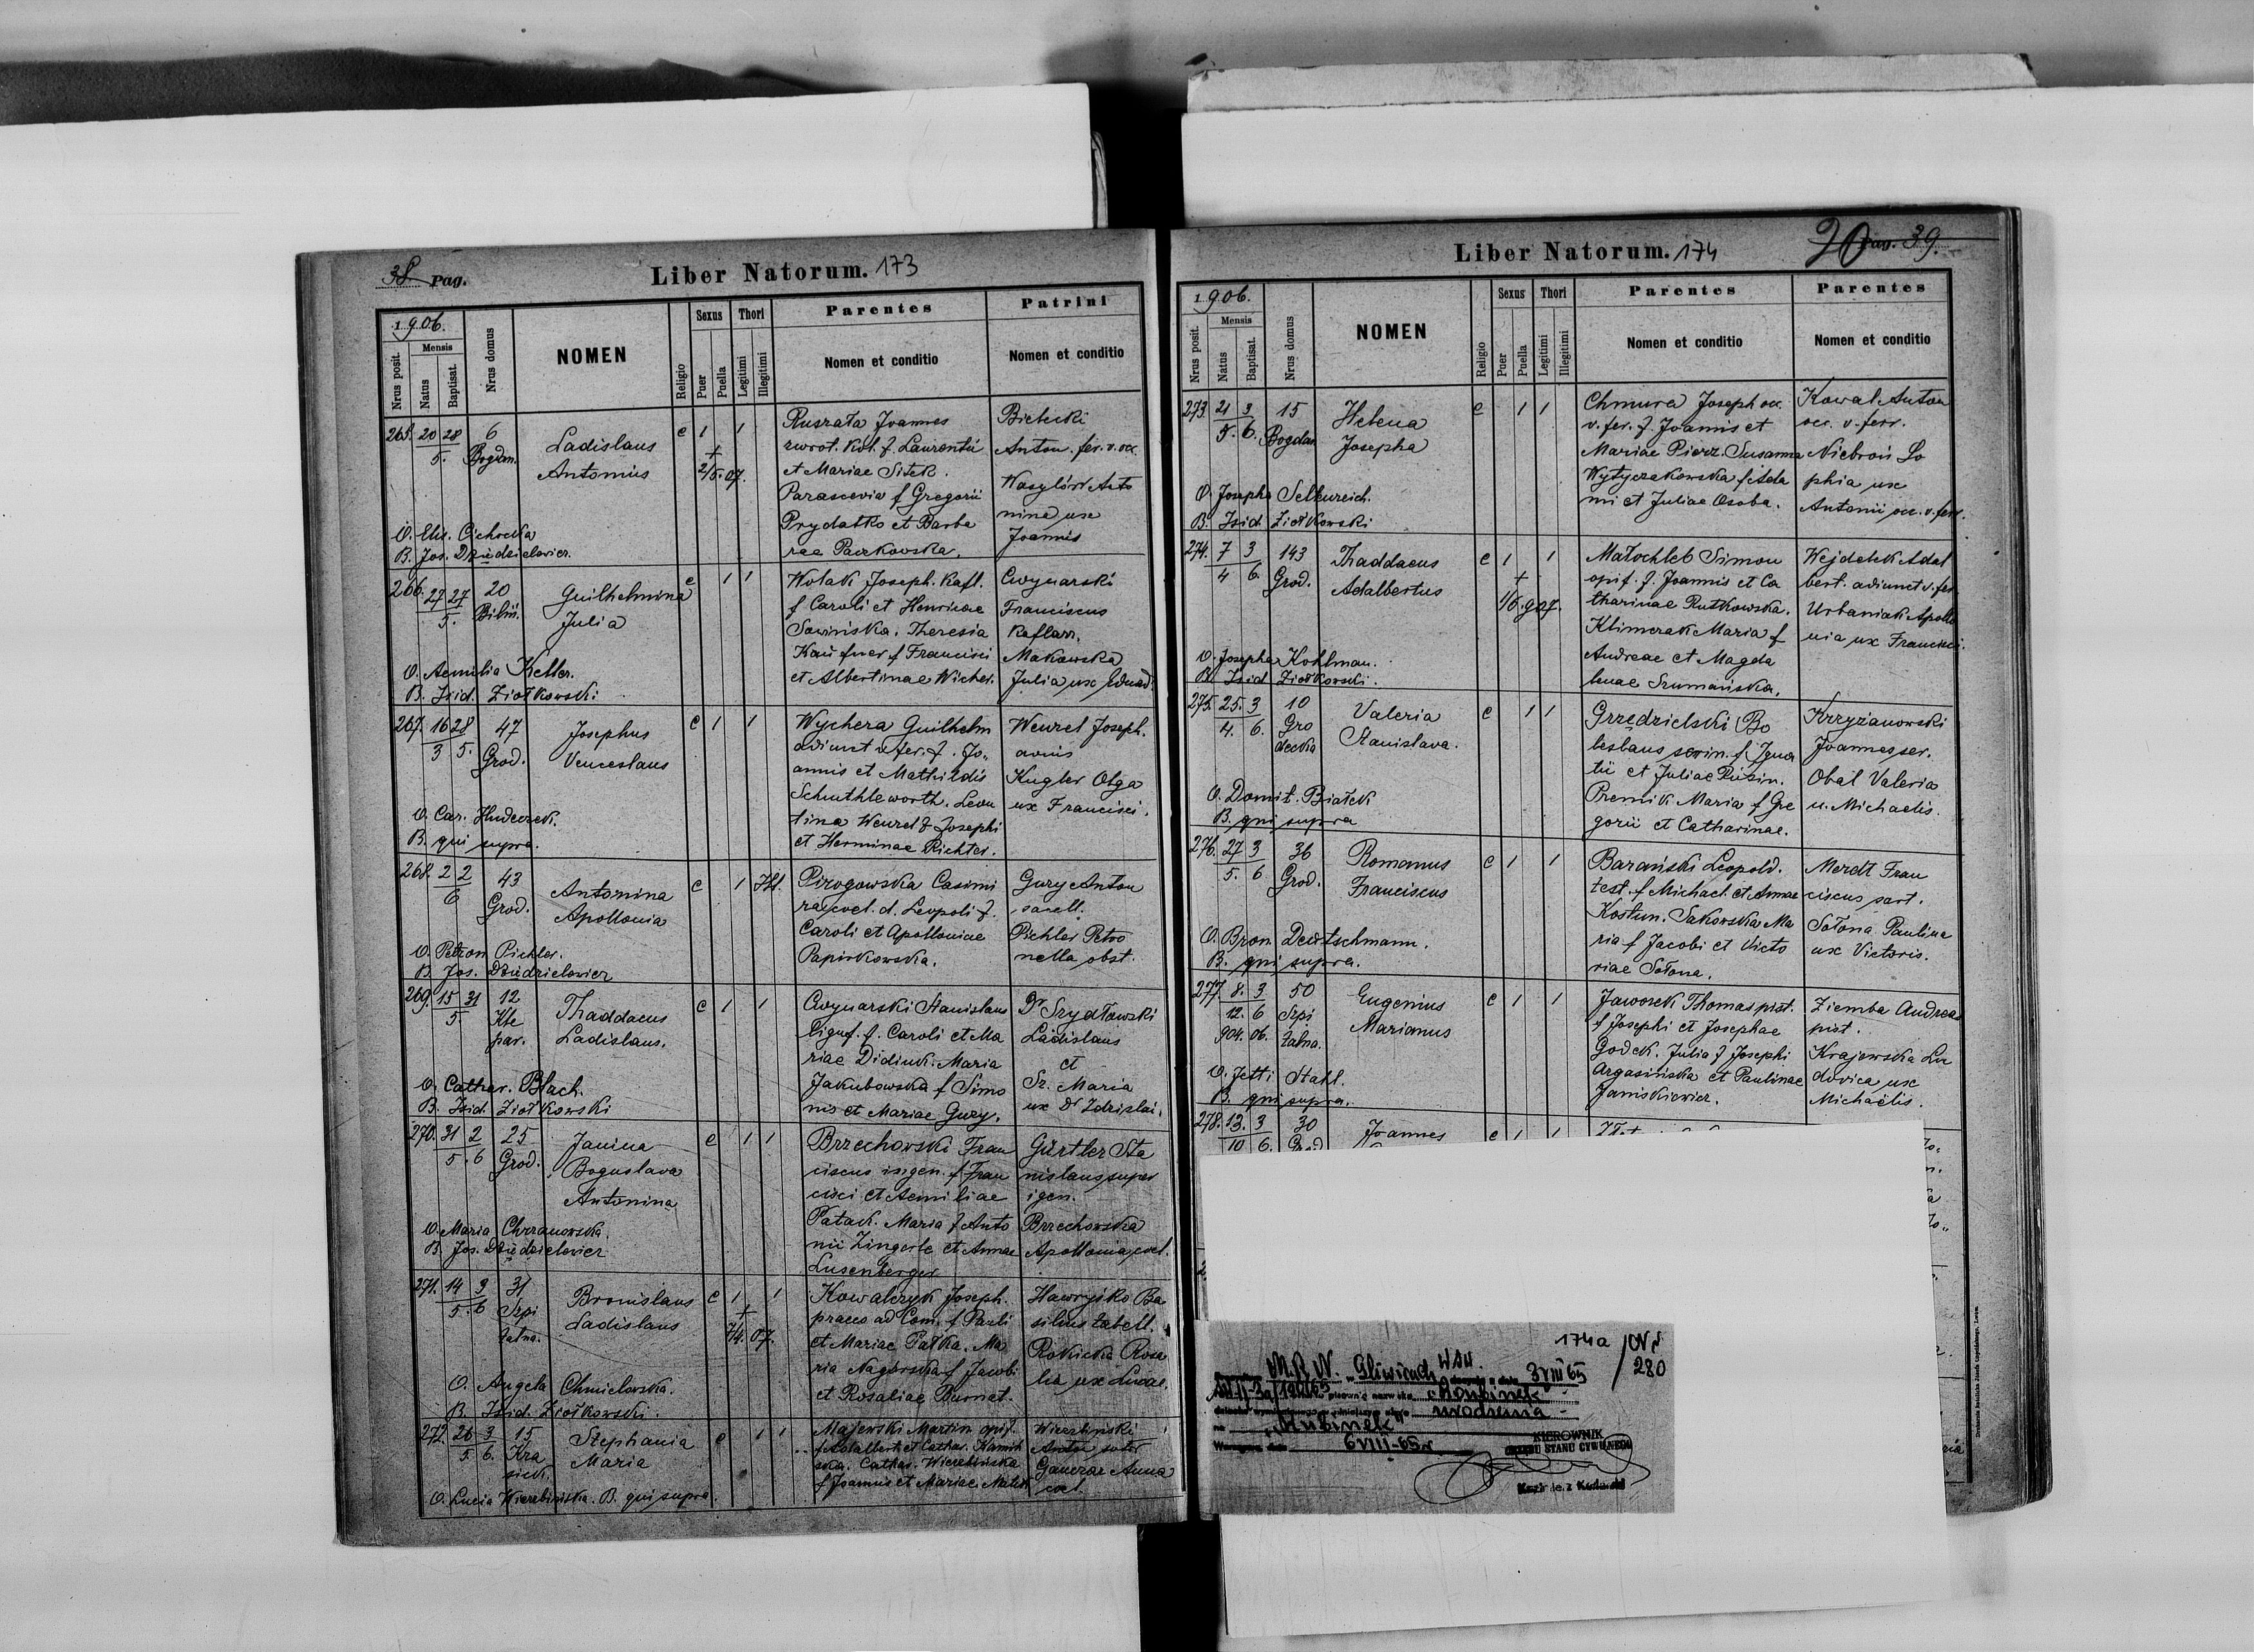 38 Pag.
Liber Natorum. 173
1906.
Nrus posit.
Mensis
Natus
Baptisat.
Nrus domus
NOMEN
Religio
Sexus
Puer
Puella
Thori
Legitimi
Illegitimi
Parentes
Nomen et conditio
Patrini
Nomen et conditio
265. 20 28 6 Ladislaus c 1 1
5. Bogdan. Antonius
+
2/5. 07.
Ruszata Joannes
zwrot. kol. f. Laurentii
et Mariae Sitek.
Parascevia f Gregorii
Prydatko et Barba
rae Paczkowska.
Bielecki
Anton. fer. v. occ.
Wasylów Anto
nina ux
Joannis
O. Elis. Cichocka
B. Jos. Dziedzielewicz.
266. 27 27 20 Guilhelmina c 1 1
5. Julia
Wolak Joseph. kafl.
f Caroli et Henricae
Sowińska. Theresia
f Francisci
et Albertinae Wicher.
Cwynarski
Franciscus
kaflarz.
Makowska
Julia ux Eduard.
O. Aemilia Keller.
B. Isid. Ziołkowski.
267. 16 28 47 Josephus c 1 1
3 5. Grod. Venceslaus
Wychera Guilhelm
adiunct v fer. f. Jo„
annis et Mathildis
Schuthleworth. Leon
tina Wenzel f Josephi
et Herminae Richter.
Wenzel Joseph.
Kugler Olga
ux Francisci.
O. Car. Hudeczek.
B. qui supra.
268. 2 2 43 Antonina c 1 Ill.
6 Grod. Apollonia
Pirogowska Casimi
ra coel. d. Leopoli f.
Caroli et Apolloniae
Papirkowska.
Gury Anton
sacell.
Pichler Petro
nella obst.
O. Petron Pichler.
B. Jos. Dziedzielewicz
269. 15 31 12 Thaddaeus c 1 1
5. Kle Ladislaus.
par.
Cwynarski Stanislaus
lignf. f. Caroli et Ma
riae Didiuk. Maria
Jakubowska f Simo
nis et Mariae Gury.
Dr Szydłowski
Ladislaus
et
Sz. Maria
ux Dr Zdzislai.
O. Cathar. Blach.
B. Isid. Ziołkowski
270. 31 2 25 Janina c 1 1
5. 6 Grod. Boguslava
Antonina
Brzechowski Fran
ciscus ingen. f Fran
cisci et Aemiliae
Patack. Maria f Anto
nii Zingerle et Annae
Lusenberger
Gürtler Sta
nislaus super
igen.
Brzechowska
Apollonia coel.
O. Maria Chrzanowska.
B. Jos. Dziedzielewicz
271. 14 3 31 Bronislaus c 1 1
5. 6 Szpi Ladislaus
talna.
+
7/4. 07.
Kowalczyk Joseph.
praeco ad Com. f Pauli
et Mariae Pałka. Ma
ria Nagórska f Jacobi
et Rosaliae Burnat.
Hawryśko Ba
silius tabell.
Rokicka Rosa
lia ux Lucae.
O. Angela Chmielowska.
B. Isid. Ziołkowski.
272. 26 3 15 Stephania c 1 1
5. 6. Kra Maria
sick.
Majewski Martin opif.
f Adalberti et Cathar. Kamiń
ska. Cathar. Wierzbińska
f Joannis et Mariae
Wierzbiński
Anton sutor
Anna
coel.
O. Lucia Wierzbińska. B. qui supra.
Liber Natorum. 174
20 Pag. 39.
1906.
Nrus posit.
Mensis
Natus
Baptisat.
Nrus domus
NOMEN
Religio
Sexus
Puer
Puella
Thori
Legitimi
Illegitimi
Parentes
Nomen et conditio
Parentes
Nomen et conditio
273. 21 3 15 Helena c 1 1
5. 6. Bogdan Josepha
Chmura Joseph occ.
v. fer. f. Joannis et
Mariae Pierz. Susanna
Wytyczakowska f Ada
mi et Juliae Osoba.
Kowal Anton
occ. v. ferr.
Niebroń So
phia ux
Antonii occ. v. ferr.
O. Josepha Sellenreich.
B. Isid. Ziołkowski
274. 7 3 143 Thaddaeus c 1 1
4 6. Grod. Adalbertus
+
1/6. 907.
Małochleb Simon
opif. f. Joannis et Ca
tharinae Rutkowska.
Klimczak Maria f
Andreae et Magda
lenae Szumańska.
Wejdelek Adal
bert. adiunct v. fer.
Urbaniak Apollo
nia ux Francisci.
O. Josepha Kohlman.
B. Isid Ziołkowski.
275. 25. 3 10 Valeria c 1 1
4. 6. Gro Stanislava.
decka
Grzędzielski Bo
leslaus scrin. f Igna
tii et Juliae Rubin.
Premik Maria f Gre
gorii et Catharinae.
Krzyżanowski
Joannes ser.
Obal Valeria
u. Michaelis.
O. Domit. Białek
B. qui supra
276. 27 3 36 Romanus c 1 1
5. 6 Grod. Franciscus
Barański Leopold.
test. f Michael. et Annae
Kostun. Sakowska Ma
ria f Jacobi et Victo
riae Sołona.
Merdt Fran
ciscus sart.
Sołona Paulina
ux Victoris.
O. Bron. Deutschmann.
B. qui supra.
277. 8. 3 50 Eugenius c 1 1
12. 6 Szpi Marianus
904. 06. talna.
Jaworek Thomas pist.
f Josephi et Josephae
Godek. Julia f Josephi
Argasińska et Paulinae
Janiskiewicz.
Ziemba Andreas
pist.
Krajewska Lu
dovica ux
Michaelis.
O. Jetti Stahl.
B. qui supra.
278. 13. 3 30 Joannes c 1 1
10 6. Grod
174a / Nr 280
M.R.N. Gliwicach WSW. 3 VIII 65
urodzenia
„Rubinek"
6 VIII-65r
KIEROWNIK
URZĘDU STANU CYWILNEGO